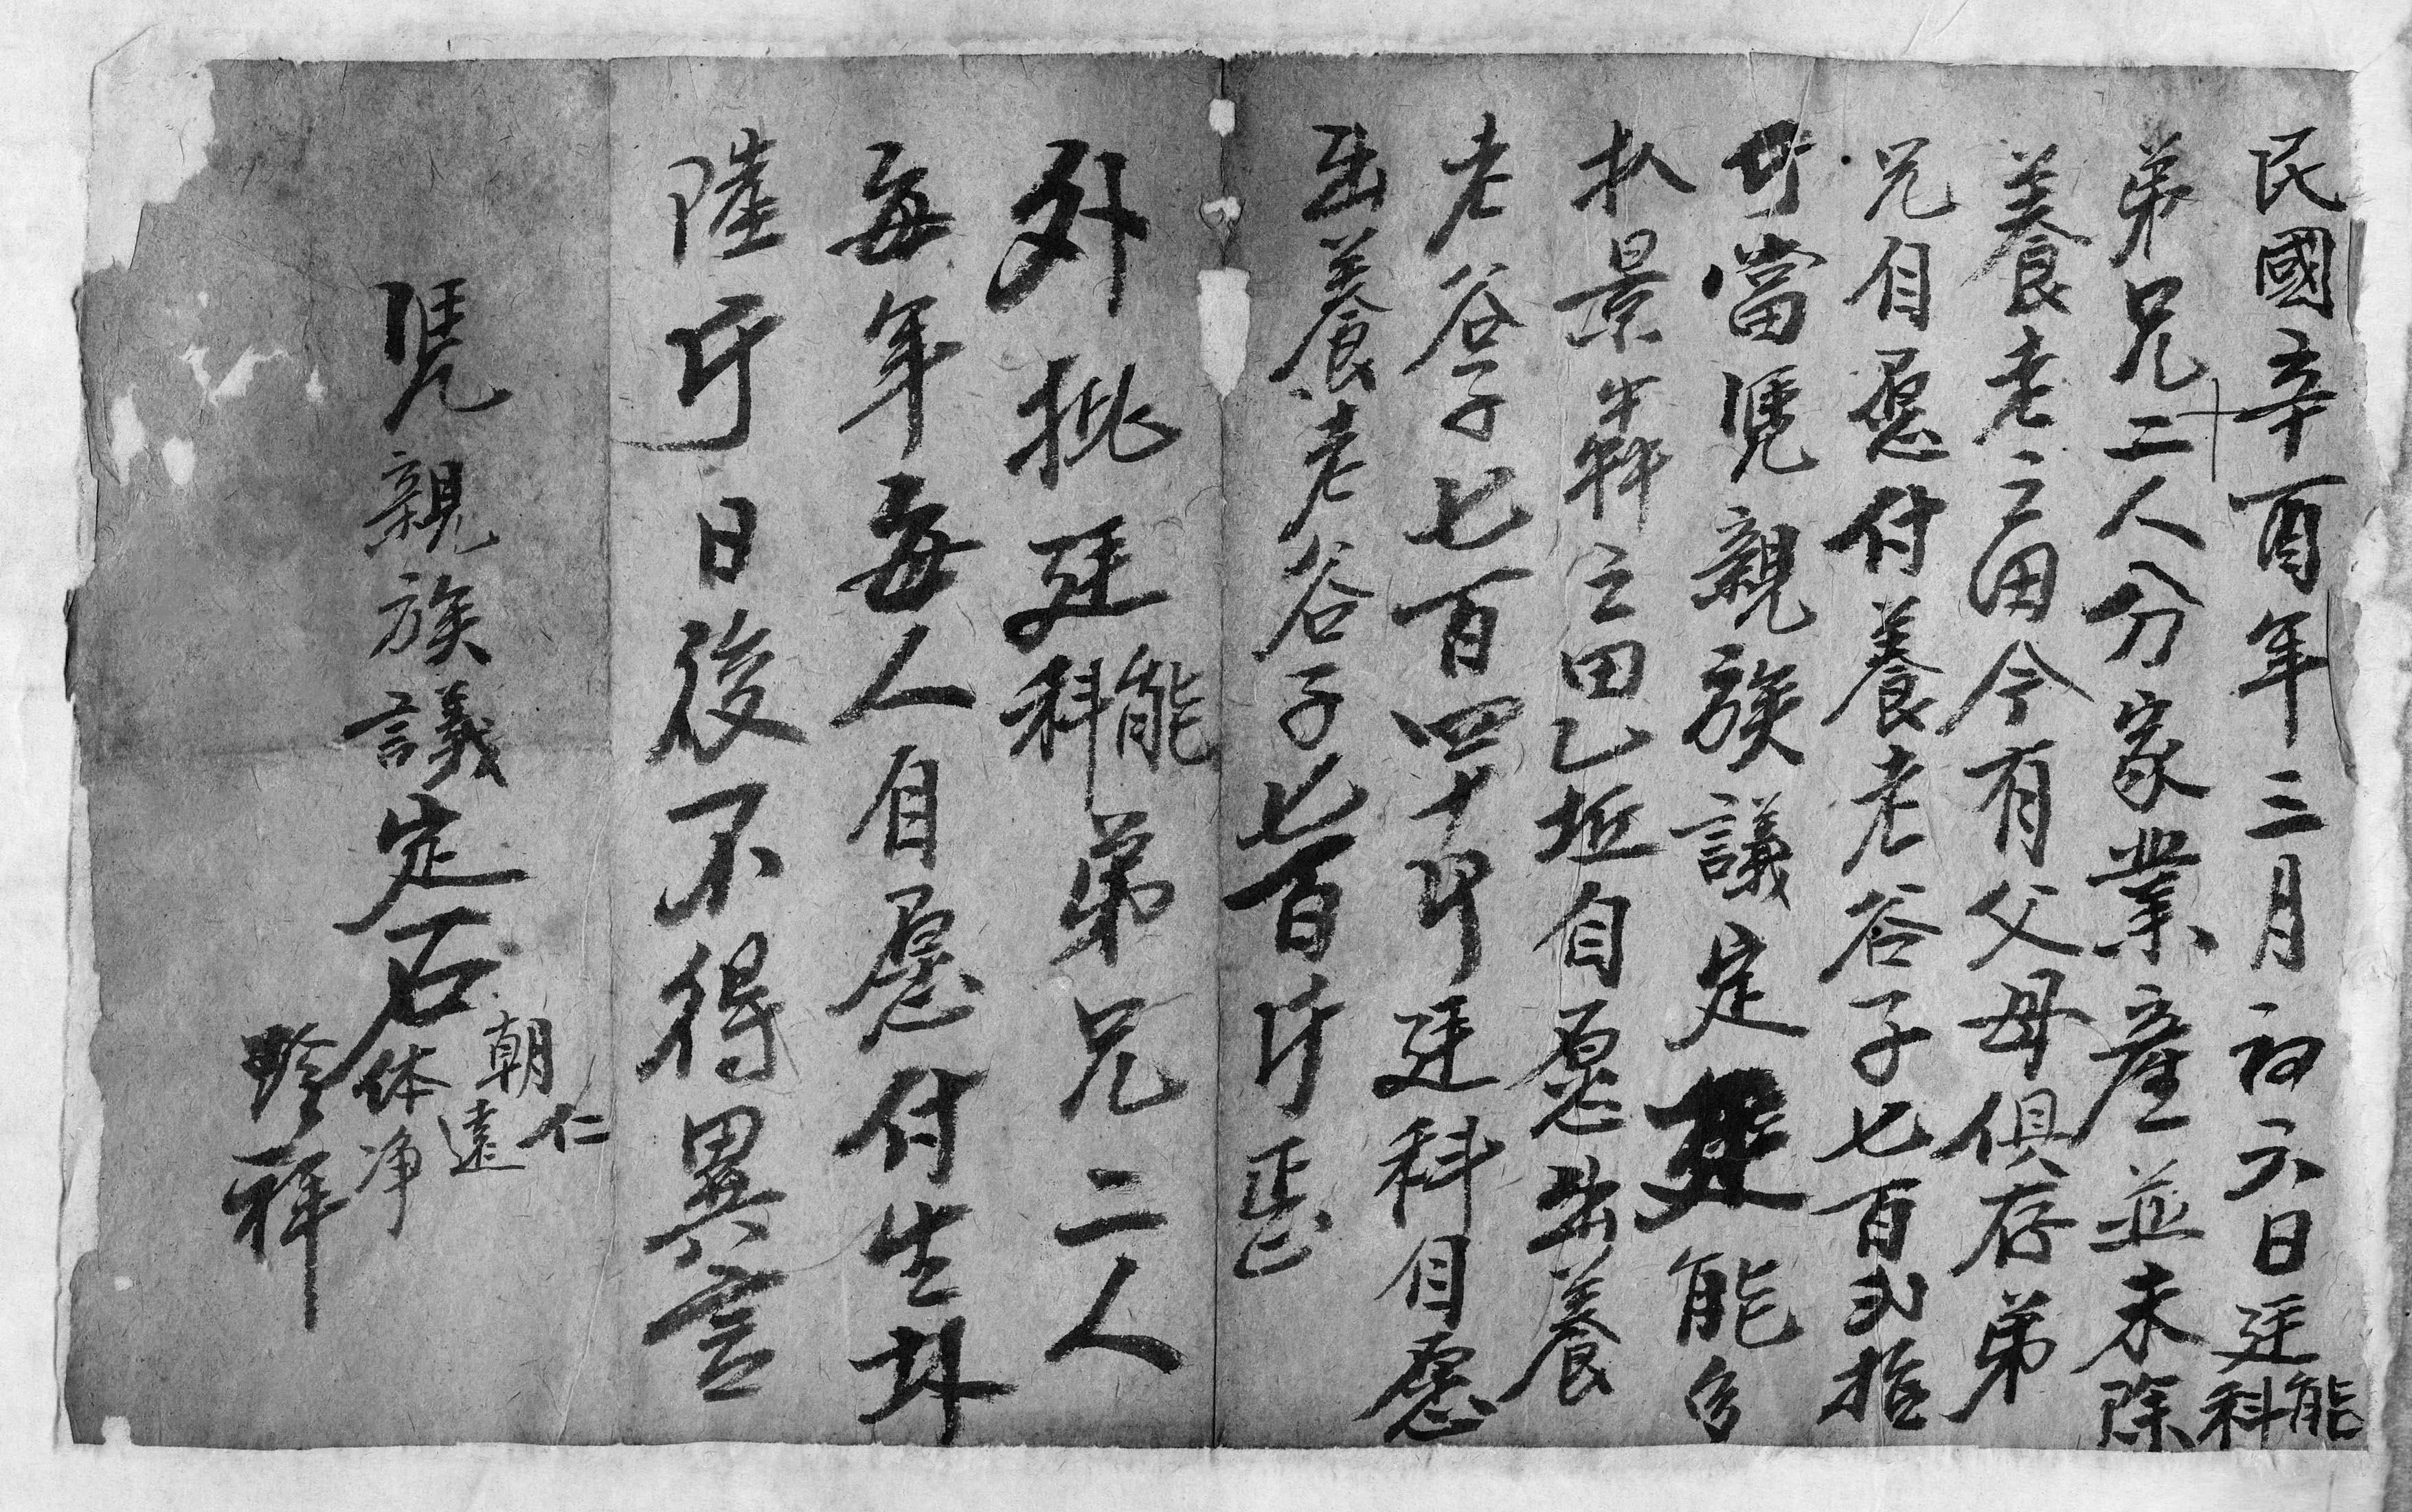 民國辛酉年三月初六日廷能科
弟兄二人分家業產並未除
養老之田今有父母俱存弟
兄自愿付養老谷子七百弍拾
斤當凴親族議定廷能多
扒景犇之田乙坵自愿出養
老谷子七百四十斤廷科自愿
出養老谷子七百斤正
外批廷能科弟兄二人
每年每人自愿付生
陸斤日後不得異言
凴親族議定石朝仁
遠
体净
祥